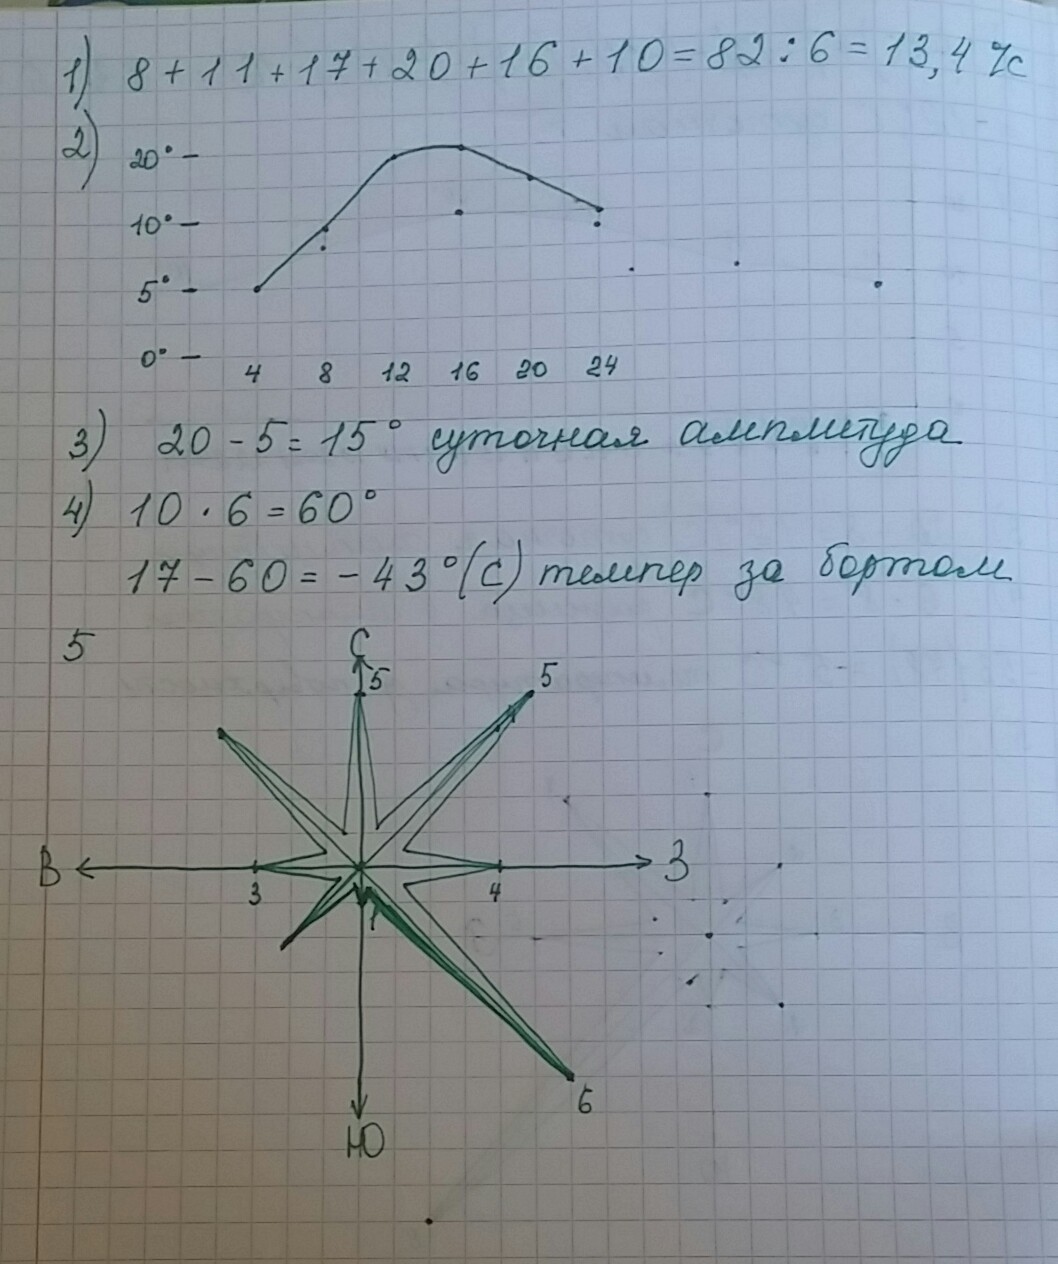 1) 8+11+17+20+16+10=82:6=13,4 %с
2)
20°
10°
5°
0°
4 8 12 16 20 24
3) 20-5=15° суточная амплитуда
4) 10·6=60°
17-60=-43°(С) темпер за бортом
5
С
5 5
В З
3 4
1
6
Ю